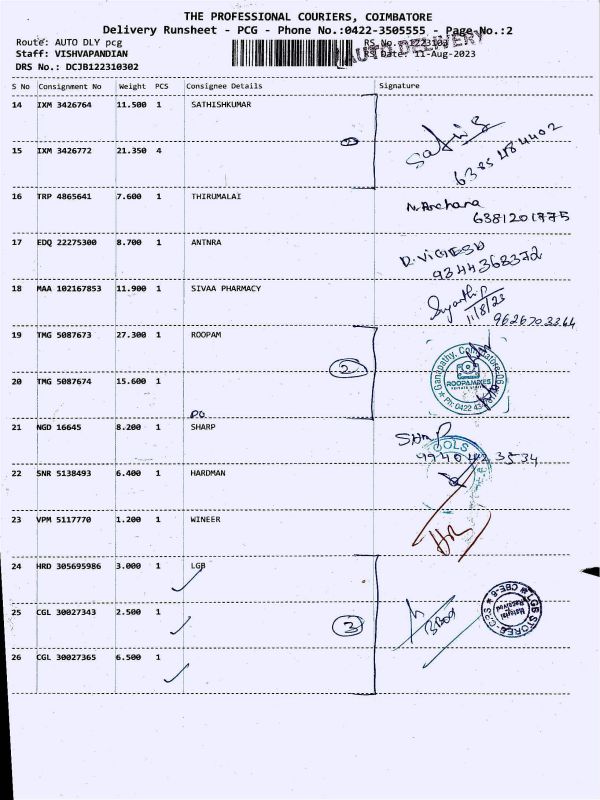 THE PROFESSIONAL COURIERS, COIMBATORE
Delivery Runsheet - PCG - Phone No.:0422-3505555 - Page No.:2
Route: AUTO DLY pcg RS No.: 1223103
AUTO DELIVERY
Staff: VISHVAPANDIAN RS Date: 11-Aug-2023
DRS No.: DCJB122310302
S No Consignment No Weight PCS Consignee Details Signature
14 IXM 3426764 11.500 1 SATHISHKUMAR
Sathis
6385484402
15 IXM 3426772 21.350 4
16 TRP 4865641 7.600 1 THIRUMALAI
N. Archana
6381201775
17 EDQ 22275300 8.700 1 ANTNRA
D. VIGNESH
9344368372
18 MAA 102167853 11.900 1 SIVAA PHARMACY
11/8/23
9626703364
19 TMG 5087673 27.300 1 ROOPAM
2
Ganapathy, Coimbatore-06
ROOPAMIXES
PRIVATE LIMITED
20 TMG 5087674 15.600 1
PO
21 NGD 16645 8.200 1 SHARP
SHARP
9940423534
OOLS
22 SNR 5138493 6.400 1 HARDMAN
23 VPM 5117770 1.200 1 WINEER
24 HRD 305695986 3.000 1 LGB
LGB STORES
Material Received
CBE-6
25 CGL 30027343 2.500 1
3
26 CGL 30027365 6.500 1